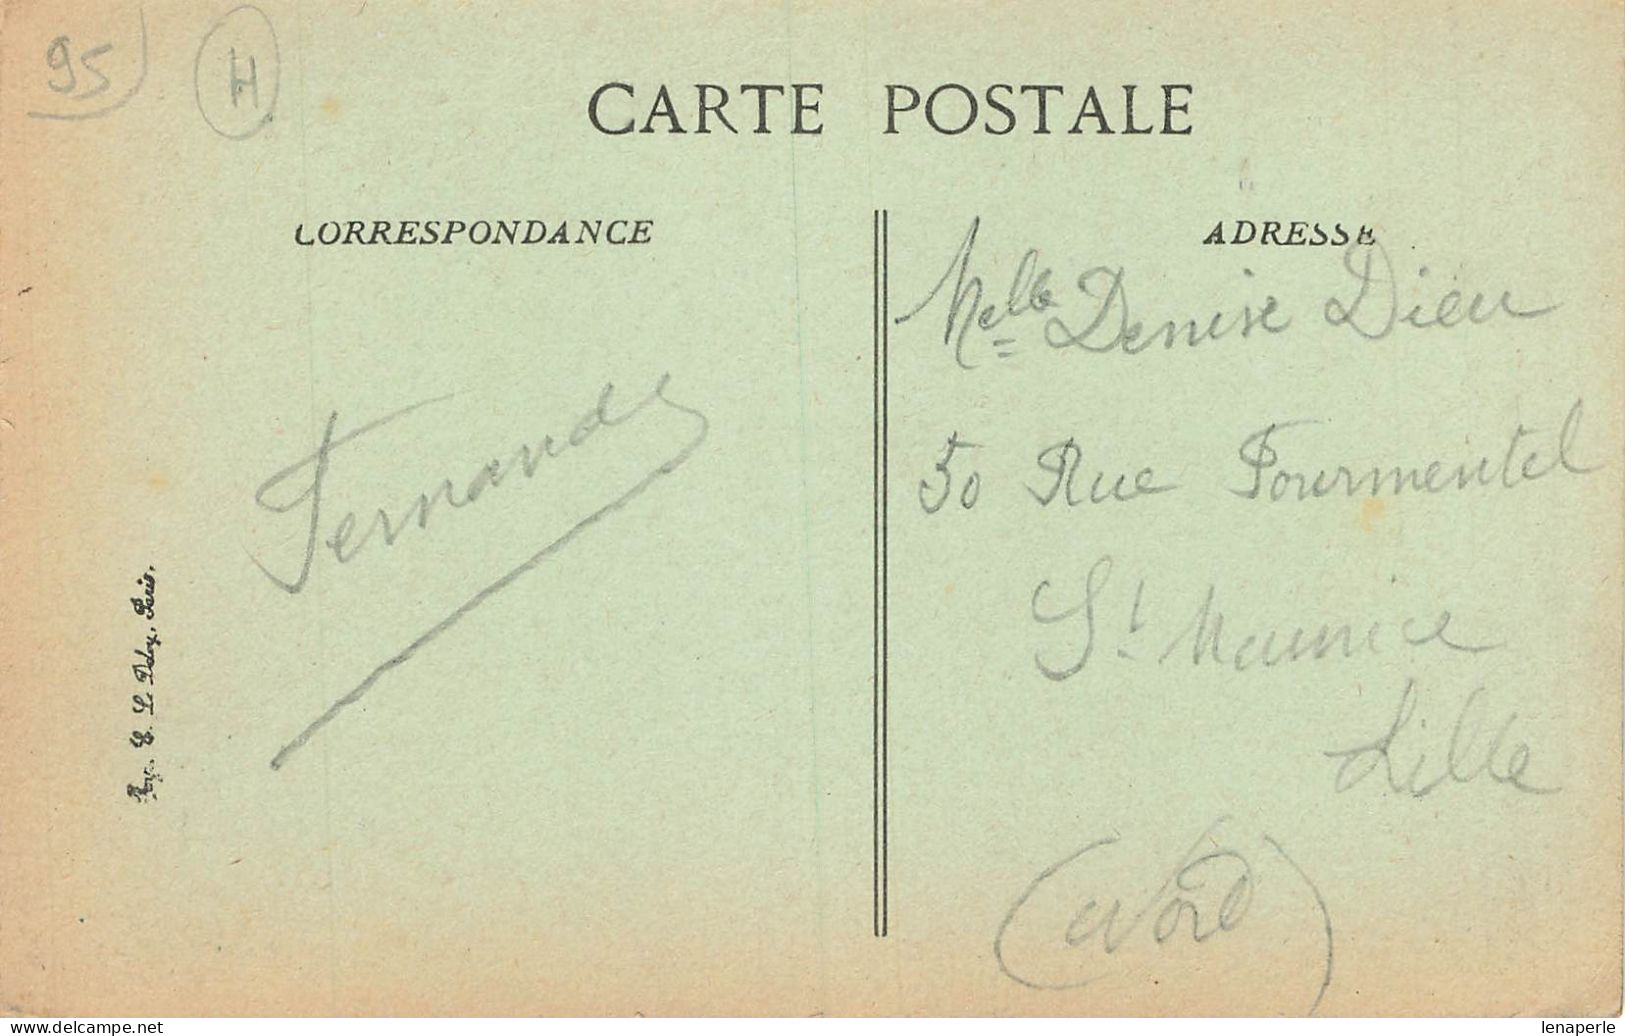 95
H
CARTE POSTALE
CORRESPONDANCE
ADRESSE
Melle Denise Dieu
50 Rue Fourmentel
St Maurice
Lille
(Nord)
Fernande
E. L. Deley, Paris.
www.delcampe.net
lenaperle